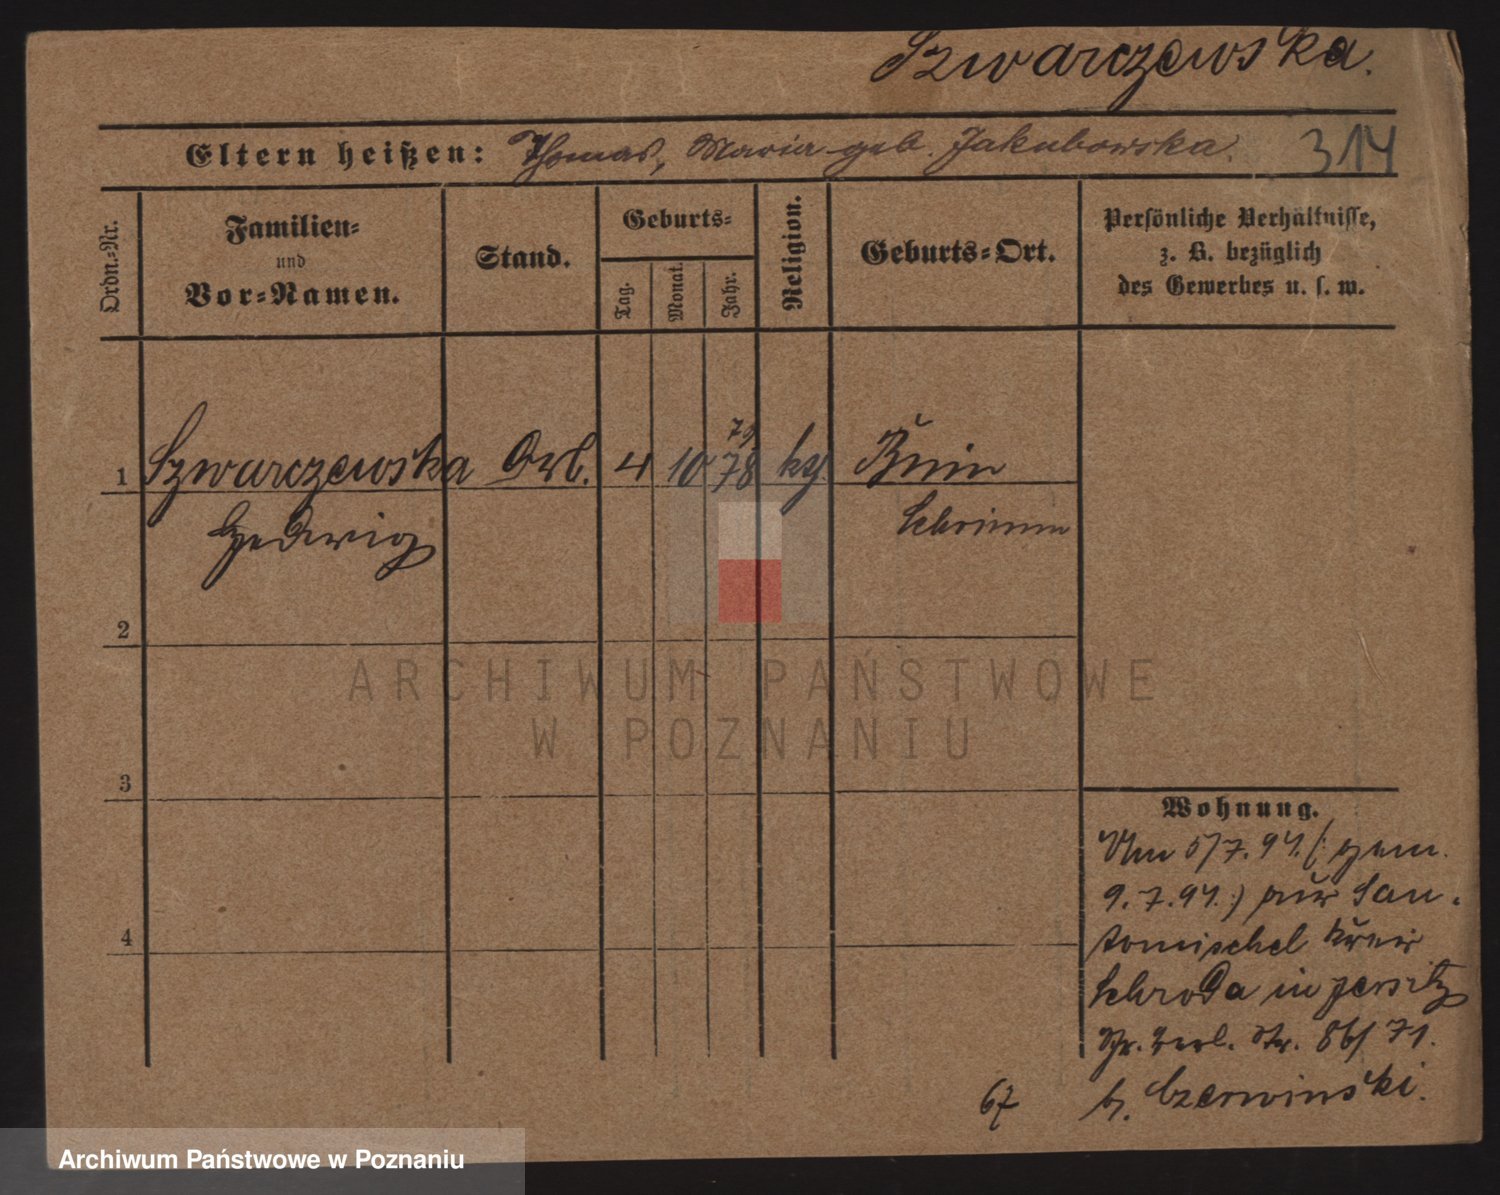 Szwarczewska.
Eltern heißen: Thomas, Maria geb. Jakubowska. 314
Ordn.-Nr.
Familien-
und
Vor-Namen.
Stand.
Geburts-
Tag.
Monat.
Jahr.
Religion.
Geburts-Ort.
Persönliche Verhältnisse,
z. B. bezüglich
des Gewerbes u. s. w.
79.
1 Szwarczewska Arb. 4 10 78 kth. Bnin
Hedwig Schrimm
2
3
4
ARCHIWUM PAŃSTWOWE
W POZNANIU
Wohnung.
Am 5/7. 94. (gem.
9. 7. 94.) aus San-
tomischel Kreis
Schroda in Jersitz
Gr. Berl. Str. 86/71.
b. Czerwinski.
67
Archiwum Państwowe w Poznaniu